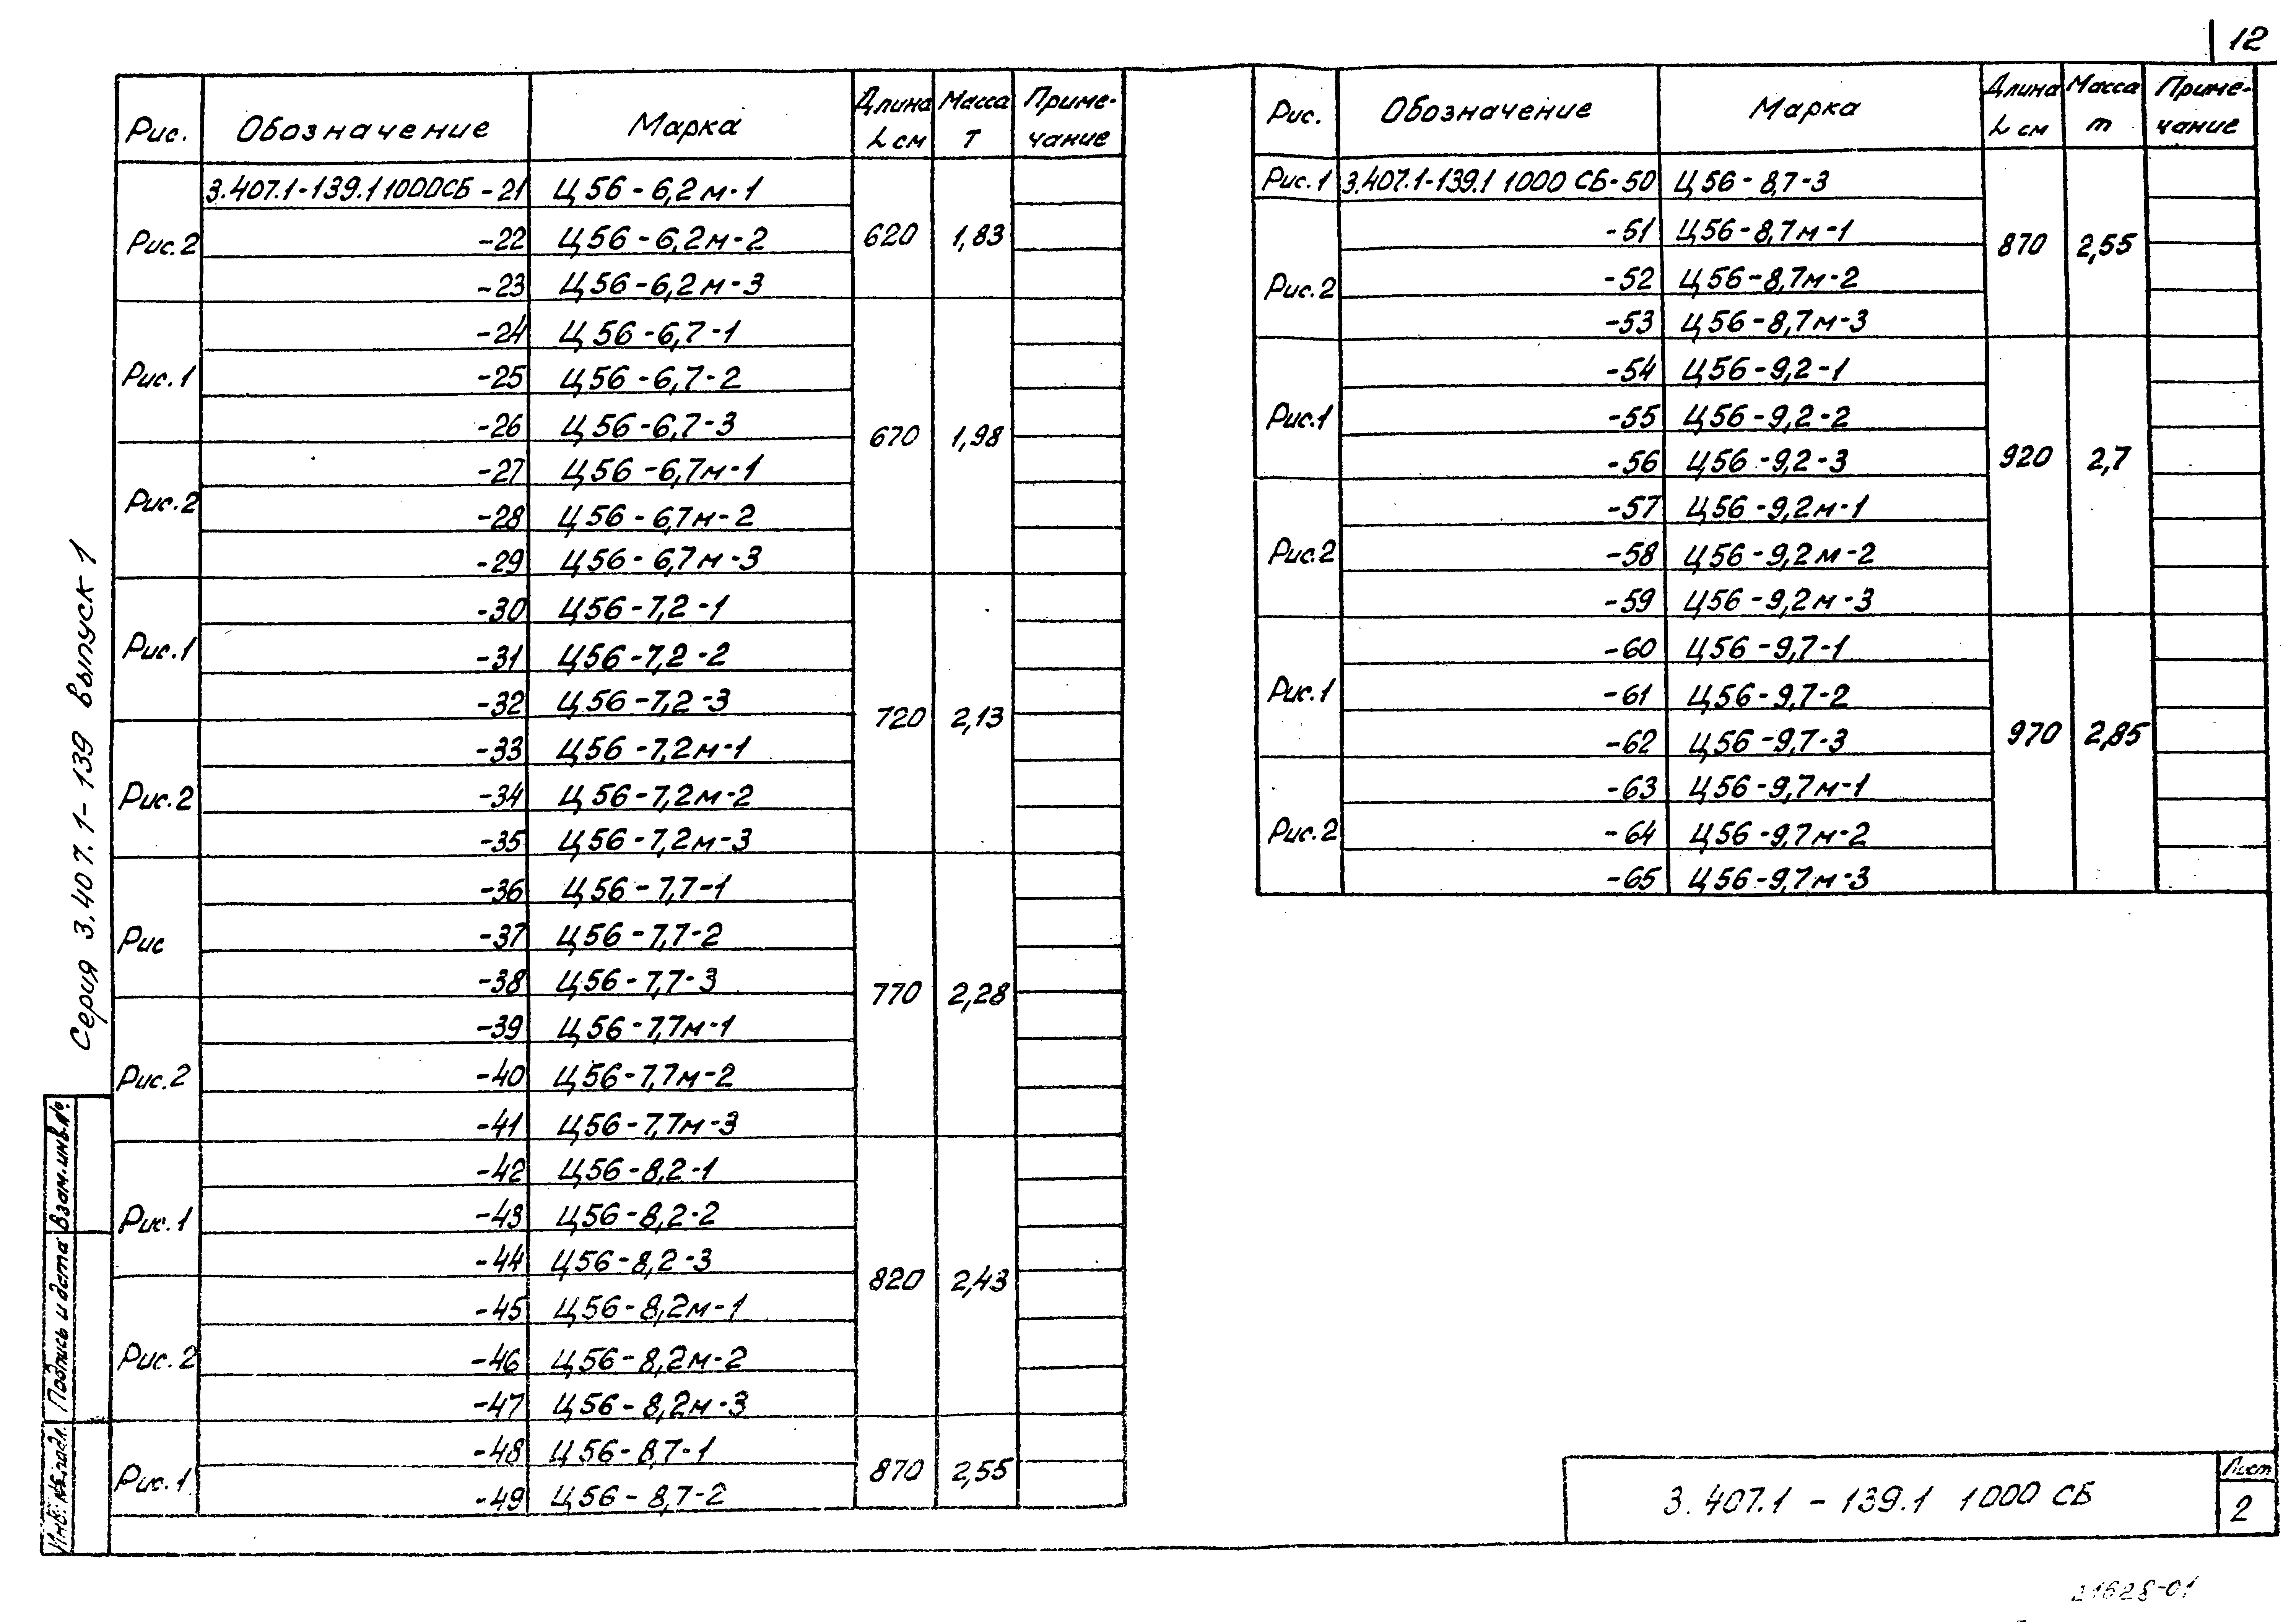 12
Рис. Обозначение Марка Длина L см Масса Т Приме-чание
Рис.2 3.407.1-139.1 1000СБ -21 Ц56-6,2м-1 620 1,83
-22 Ц56-6,2м-2
-23 Ц56-6,2м-3
Рис.1 -24 Ц56-6,7-1 670 1,98
-25 Ц56-6,7-2
-26 Ц56-6,7-3
Рис.2 -27 Ц56-6,7м-1
-28 Ц56-6,7м-2
-29 Ц56-6,7м-3
Рис.1 -30 Ц56-7,2-1 720 2,13
-31 Ц56-7,2-2
-32 Ц56-7,2-3
Рис.2 -33 Ц56-7,2м-1
-34 Ц56-7,2м-2
-35 Ц56-7,2м-3
Рис -36 Ц56-7,7-1 770 2,28
-37 Ц56-7,7-2
-38 Ц56-7,7-3
Рис.2 -39 Ц56-7,7м-1
-40 Ц56-7,7м-2
-41 Ц56-7,7м-3
Рис.1 -42 Ц56-8,2-1 820 2,43
-43 Ц56-8,2-2
-44 Ц56-8,2-3
Рис.2 -45 Ц56-8,2м-1
-46 Ц56-8,2м-2
-47 Ц56-8,2м-3
Рис.1 -48 Ц56-8,7-1 870 2,55
-49 Ц56-8,7-2
Рис. Обозначение Марка Длина L см Масса т Приме-чание
Рис.1 3.407.1-139.1 1000 СБ-50 Ц56-8,7-3 870 2,55
Рис.2 -51 Ц56-8,7м-1
-52 Ц56-8,7м-2
-53 Ц56-8,7м-3
Рис.1 -54 Ц56-9,2-1 920 2,7
-55 Ц56-9,2-2
-56 Ц56-9,2-3
Рис.2 -57 Ц56-9,2м-1
-58 Ц56-9,2м-2
-59 Ц56-9,2м-3
Рис.1 -60 Ц56-9,7-1 970 2,85
-61 Ц56-9,7-2
-62 Ц56-9,7-3
Рис.2 -63 Ц56-9,7м-1
-64 Ц56-9,7м-2
-65 Ц56-9,7м-3
Серия 3.407.1-139 выпуск 1
Взам.инв.№
Подпись и дата
Инв.№ подл.
3.407.1-139.1 1000 СБ
Лист
2
21628-01